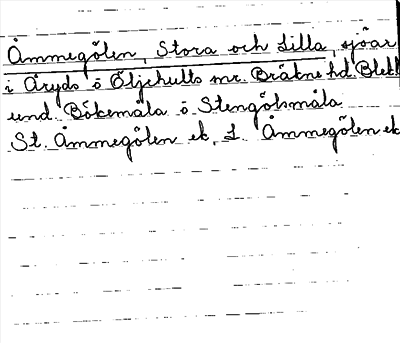 Åmmegölen, Stora och Lilla, sjöar
i Åryds o Öljehults snr. Bräkne hd Blek
und. Bökemåla o Stengölsmåla
St. Åmmegölen ek, L. Åmmegölen ek